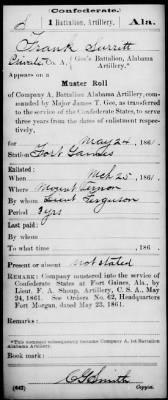 (Confederate.)
S 1 Battalion, Artillery. Ala.
Frank Surritt
Private Co. A, Gee's Battalion, Alabama Artillery.*
Appears on a
Muster Roll
of Company A, Battalion Alabama Artillery, com-
manded by Major James T. Gee, as transferred
to the service of the Confederate States, to serve
three years from the dates of enlistment respect-
ively,
for May 24, 1861.
Station Fort Gaines
Enlisted:
When Mch 25, 1861.
Where Mount Vernon
By whom Lieut Ferguson
Period 3 yrs
Last paid:
By whom
To what time , 186 .
Present or absent Not stated
REMARK: Company mustered into the service of
Confederate States at Fort Gaines, Ala., by
Lieut. F. A. Shoup, Artillery, C. S. A., May
24, 1861. See Orders No. 62, Headquarters
Fort Morgan, dated May 23, 1861.
*This company subsequently became Company A, 1st Battalion
Alabama Artillery.
Book mark:
(642) C G Smith
Copyist.